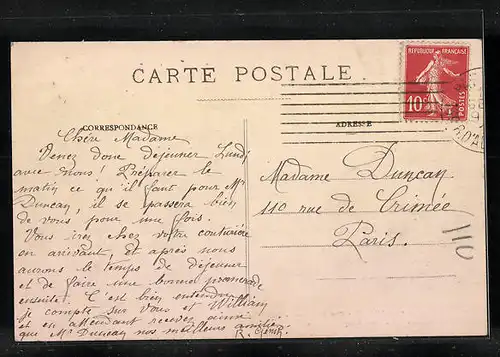 CARTE POSTALE
REPUBLIQUE FRANÇAISE
10c
POSTES
CORRESPONDANCE
ADRESSE
Chère Madame
Venez donc déjeuner Lundi
avec nous! Préparez le
matin ce qu'il faut pour Mr
Duncan, il se passera bien
de vous pour une fois.
Vous irez chez votre couturière
en arrivant, et après nous
aurons le temps de déjeuner
et de faire une bonne promenade
ensuite. C'est bien entendu
je compte sur vous et William
et en attendant recevez ainsi
que Mr Duncan nos meilleurs amitiés
Madame Duncan
110 rue de Crimée
Paris.
110